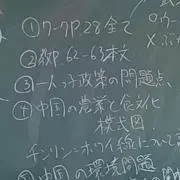 ①ワークP.28全て
②教P.62-63本文
③一人っ子政策の問題点
④中国の農業と食文化
模式図
チンリン=ホワイ線について
中国の環境問題